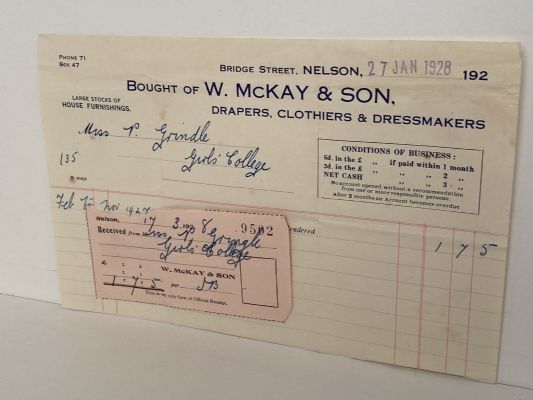 PHONE 71
BOX 47
BRIDGE STREET, NELSON, 27 JAN 1928 192
BOUGHT OF W. McKAY & SON,
LARGE STOCKS OF
HOUSE FURNISHINGS.
DRAPERS, CLOTHIERS & DRESSMAKERS
Miss P. Grindle
Girls' College
135
CONDITIONS OF BUSINESS :
6d. in the £ ,, if paid within 1 month
3d. in the £ ,, ,, ,, 2 ,,
NET CASH ,, ,, 3 ,,
No account opened without a recommendation
from one or more responsible persons.
After 3 months an Account becomes overdue
Feb Nov 1927
rendered
1 7 5
Nelson, 17 3 1928 9502
Received from Miss P Grindle
Girls College
£ : :
W. McKAY & SON
1 : 7 : 5 per
This is the only form of Official Receipt.